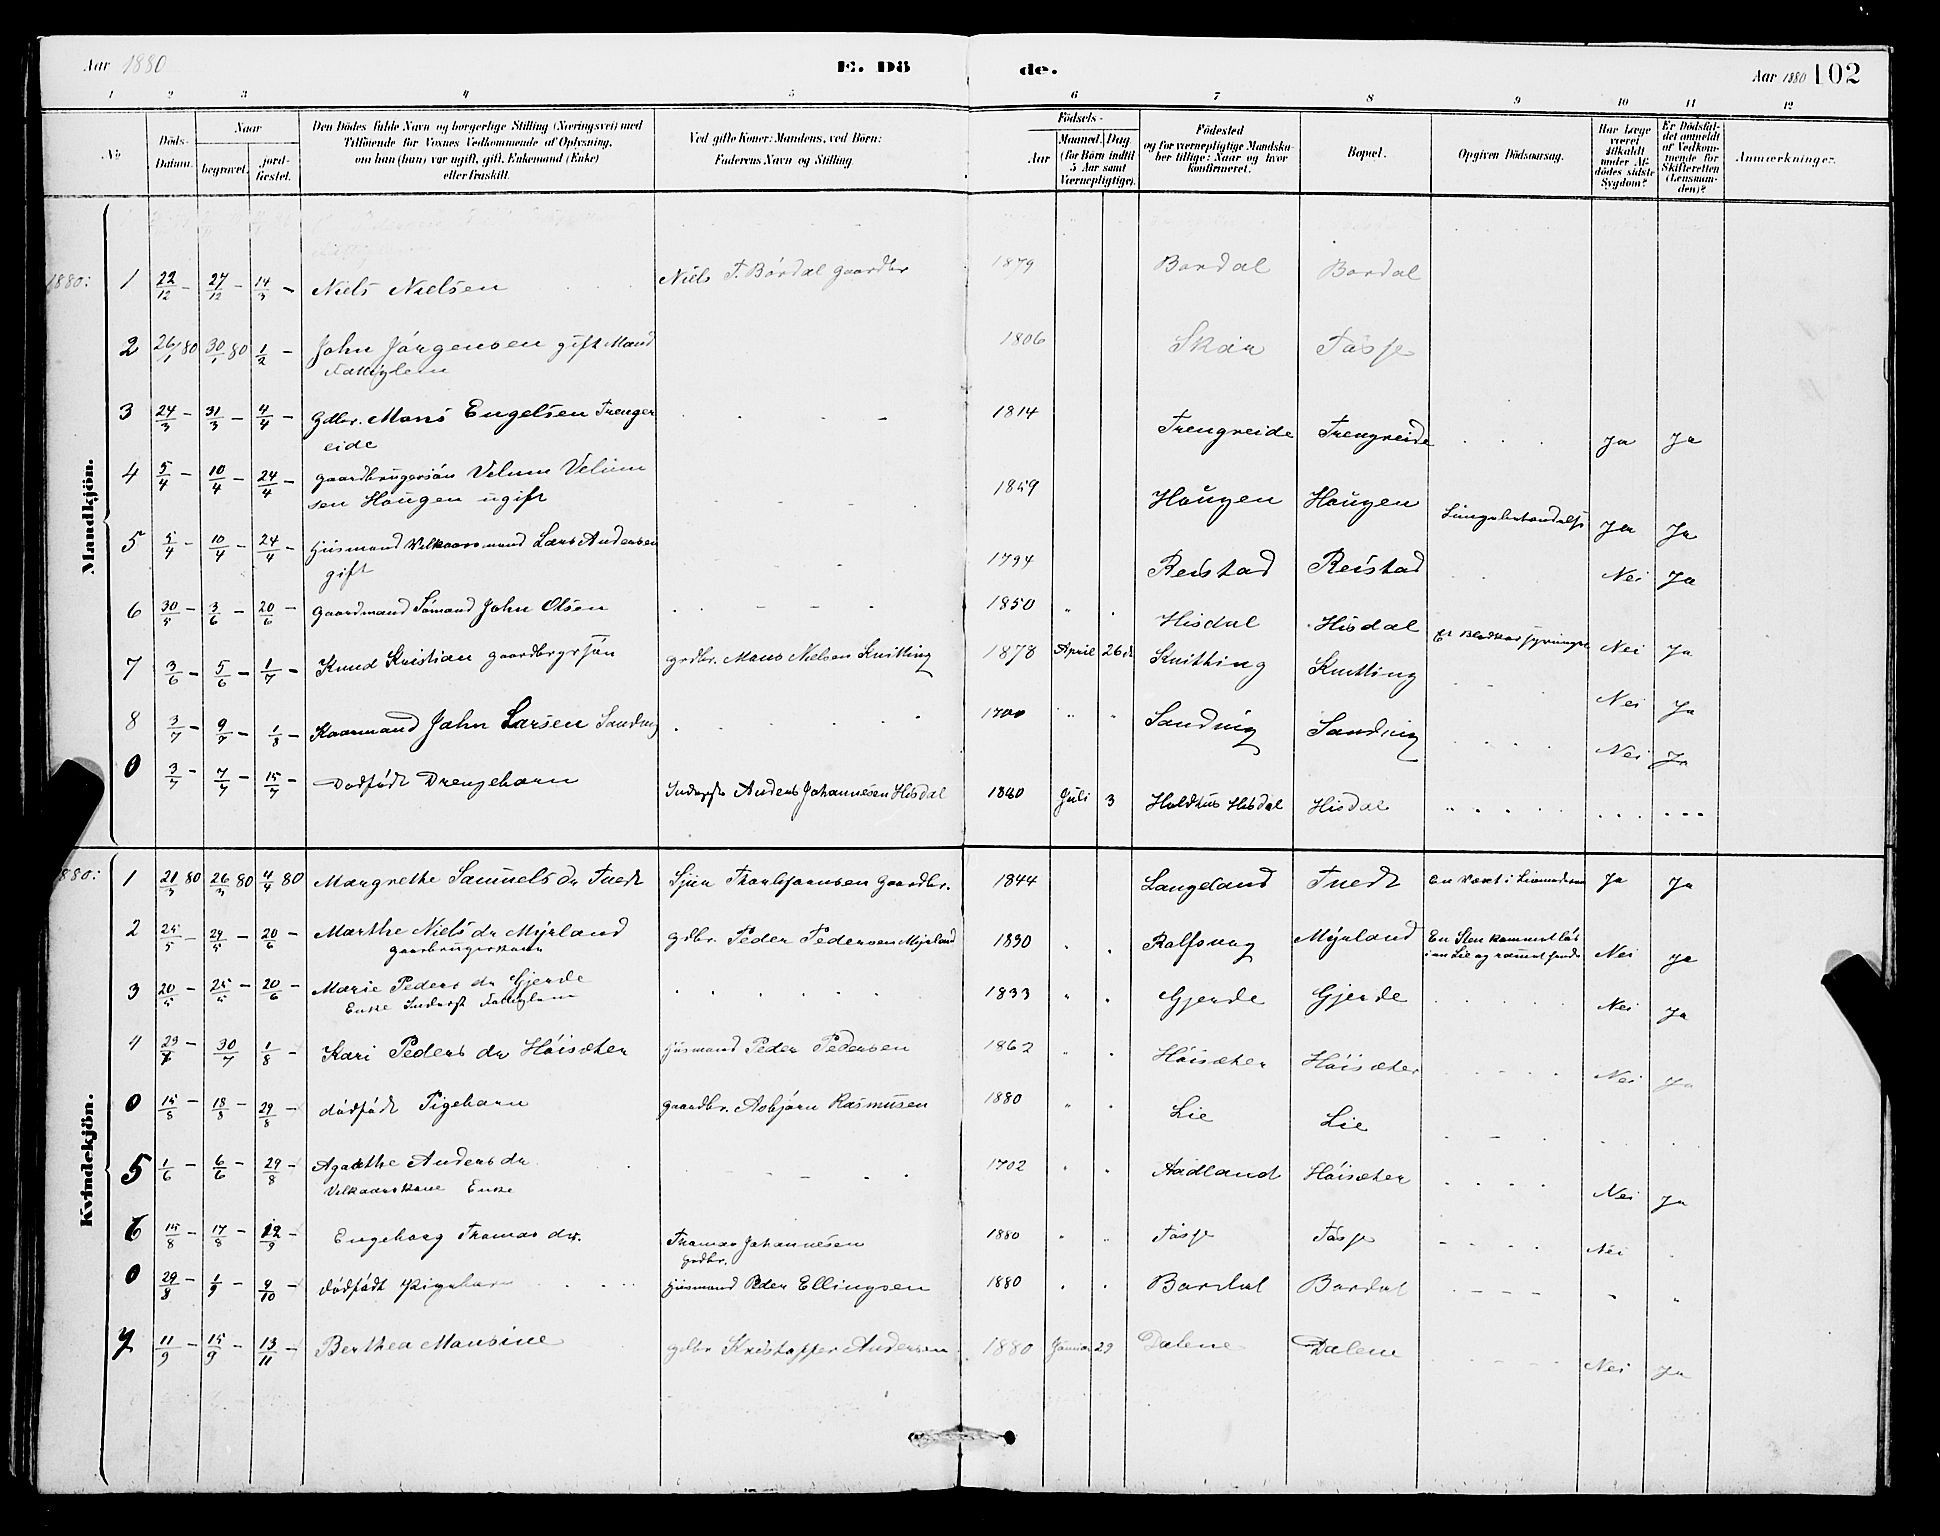 Aar 1880
E. Dö de.
Aar 1880 102
1 2 3 4 5 6 7 8 9 10 11 12
No
Döds-Datum.
Naar
begravet. jord-fæstet.
Den Dödes fulde Navn og borgerlige Stilling (Næringsvei) med
Tilföiende for Voxnes Vedkommende af Oplysning,
om han (hun) var ugift, gift, Enkemand (Enke)
eller fraskilt.
Ved gifte Koner: Mandens, ved Börn:
Faderens Navn og Stilling.
Födsels-
Aar
Maaned. Dag
(for Börn indtil
5 Aar samt
Værnepligtige).
Födested
og for værnepligtige Mandska-
ber tillige: Naar og hvor
konfirmeret.
Bopæl.
Opgiven Dödsaarsag.
Har Læge
været
tilkaldt
under Af-
dödes sidste
Sygdom?
Er Dödsfal-
det anmeldt
af Vedkom-
mende for
Skifteretten
(Lensman-
den)?
Anmærkninger.
Mandkjön.
1880: 1 22/12 - 27/12 - 14/3 - Niels Nielsen Niels T. Bördal gaardbr 1879 Bordal Bordal
2 26/1 80 30/1 80 1/2 - John Jörgensen gift Mand 1806 Skár Tösse
Fattiglem
3 24/3 - 31/3 - 4/4 - Gdbr. Mons Engelsen Trenger 1814 Trengreide Trengreide Ja Ja
eide
4 5/4 - 10/4 - 24/4 - gaardbrugersön Velum Velum 1859 Hougen Hougen Lungebetændelse Ja Ja
sen Hougen ugift
5 5/4 - 10/4 - 24/4 - Husmand Velkaarsmand Lars Andersen 1794 Reistad Reistad Nei Ja
gift
6 30/5 - 3/6 - 20/6 - gaardmand Sömand John Olsen 1850 Hisdal Hisdal Nei Ja
7 3/6 - 5/6 - 1/7 - Knud Kristian gaardbrgrsön grdbr. Mons Nielsen Knitting 1878 April 26de Knitting Knitting Nei Ja
8 3/7 - 9/7 - 1/8 - Kaarmand John Larsen Sanding Sanding Sanding Nei Ja
0 3/7 - 7/7 - 15/7 - Dödfödt Drengebarn Anders Johannesen Hisdal 1880 Juli 3 Holdhus Hisdal Hisdal
Kvindekjön.
1880: 1 21/3 80 26/3 80 4/4 80 Margrethe Samuels dr Tuedt Sjur Thorbjörnsen Gaardbr. 1844 Langeland Tuedt Ja Ja
2 25/5 - 29/5 - 20/6 - Marthe Niels dr Myrland gdbr. Peder Pedersen Myrland 1830 Rolfsvag Myrland En Sten kommet lös Nei Ja
gaardbrugerskone
3 20/5 - 25/5 - 20/6 - Marie Peders dr Gjerde 1833 Gjerde Gjerde Nei Ja
Enke Inderst Fattiglem
4 29/7 - 30/7 1/8 Kari Peders dr Höisæter Husmand Peder Pedersen 1862 Höisæter Höisæter Nei Ja
0 15/8 - 18/8 - 29/8 dödfödt Pigebarn gaardbr. Asbjörn Rasmusen 1880 Lie Lie
5 1/6 - 6/6 - 29/8 Agathe Anders dr 1702 Aadland Höisæter Nei Ja
Velkaarskone Enke
6 15/8 - 17/8 - 12/9 Engeborg Thomas dr. Thomas Johannesen 1880 Tösse Tösse Nei
grdbr.
0 29/8 - 1/9 - 9/10 dödfödt Pigebarn Husmand Peder Ellingsen 1880 Bordal Bordal
7 11/9 - 15/9 - 13/11 Berthea Monsine gdbr Kristoffer Andersen 1880 Januar 29 Dalene Dalene Nei Ja